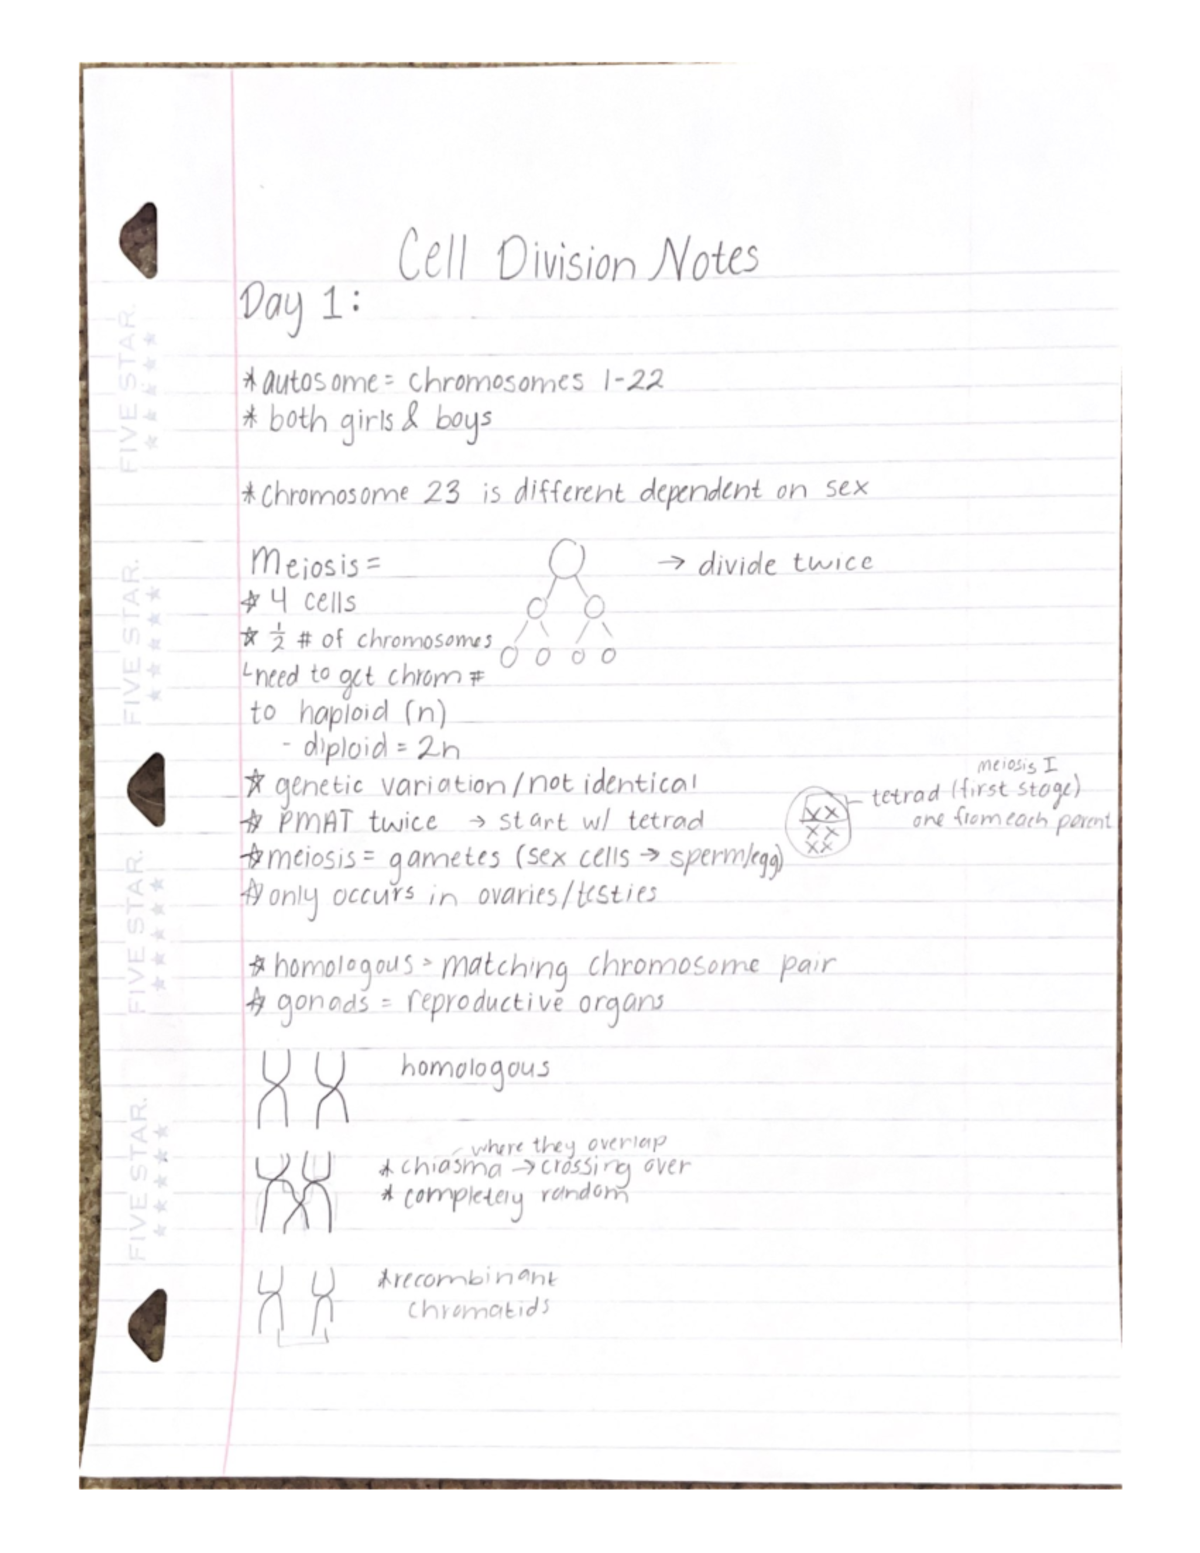 Cell Division Notes
Day 1:
* autosome = chromosomes 1-22
* both girls & boys
* Chromosome 23 is different dependent on sex
Meiosis =
→ divide twice
☆ 4 cells
☆ 1/2 # of chromosomes
└need to get chrom #
to haploid (n)
- diploid = 2n
☆ genetic variation/not identical
☆ PMAT twice → start w/ tetrad
meiosis I
tetrad (first stage)
one from each parent
☆ meiosis = gametes (sex cells → sperm/egg)
☆ only occurs in ovaries/testies
☆ homologous = matching chromosome pair
☆ gonads = reproductive organs
homologous
where they overlap
* chiasma → crossing over
* completely random
* recombinant
chromatids
FIVE STAR.
FIVE STAR.
FIVE STAR.
FIVE STAR.